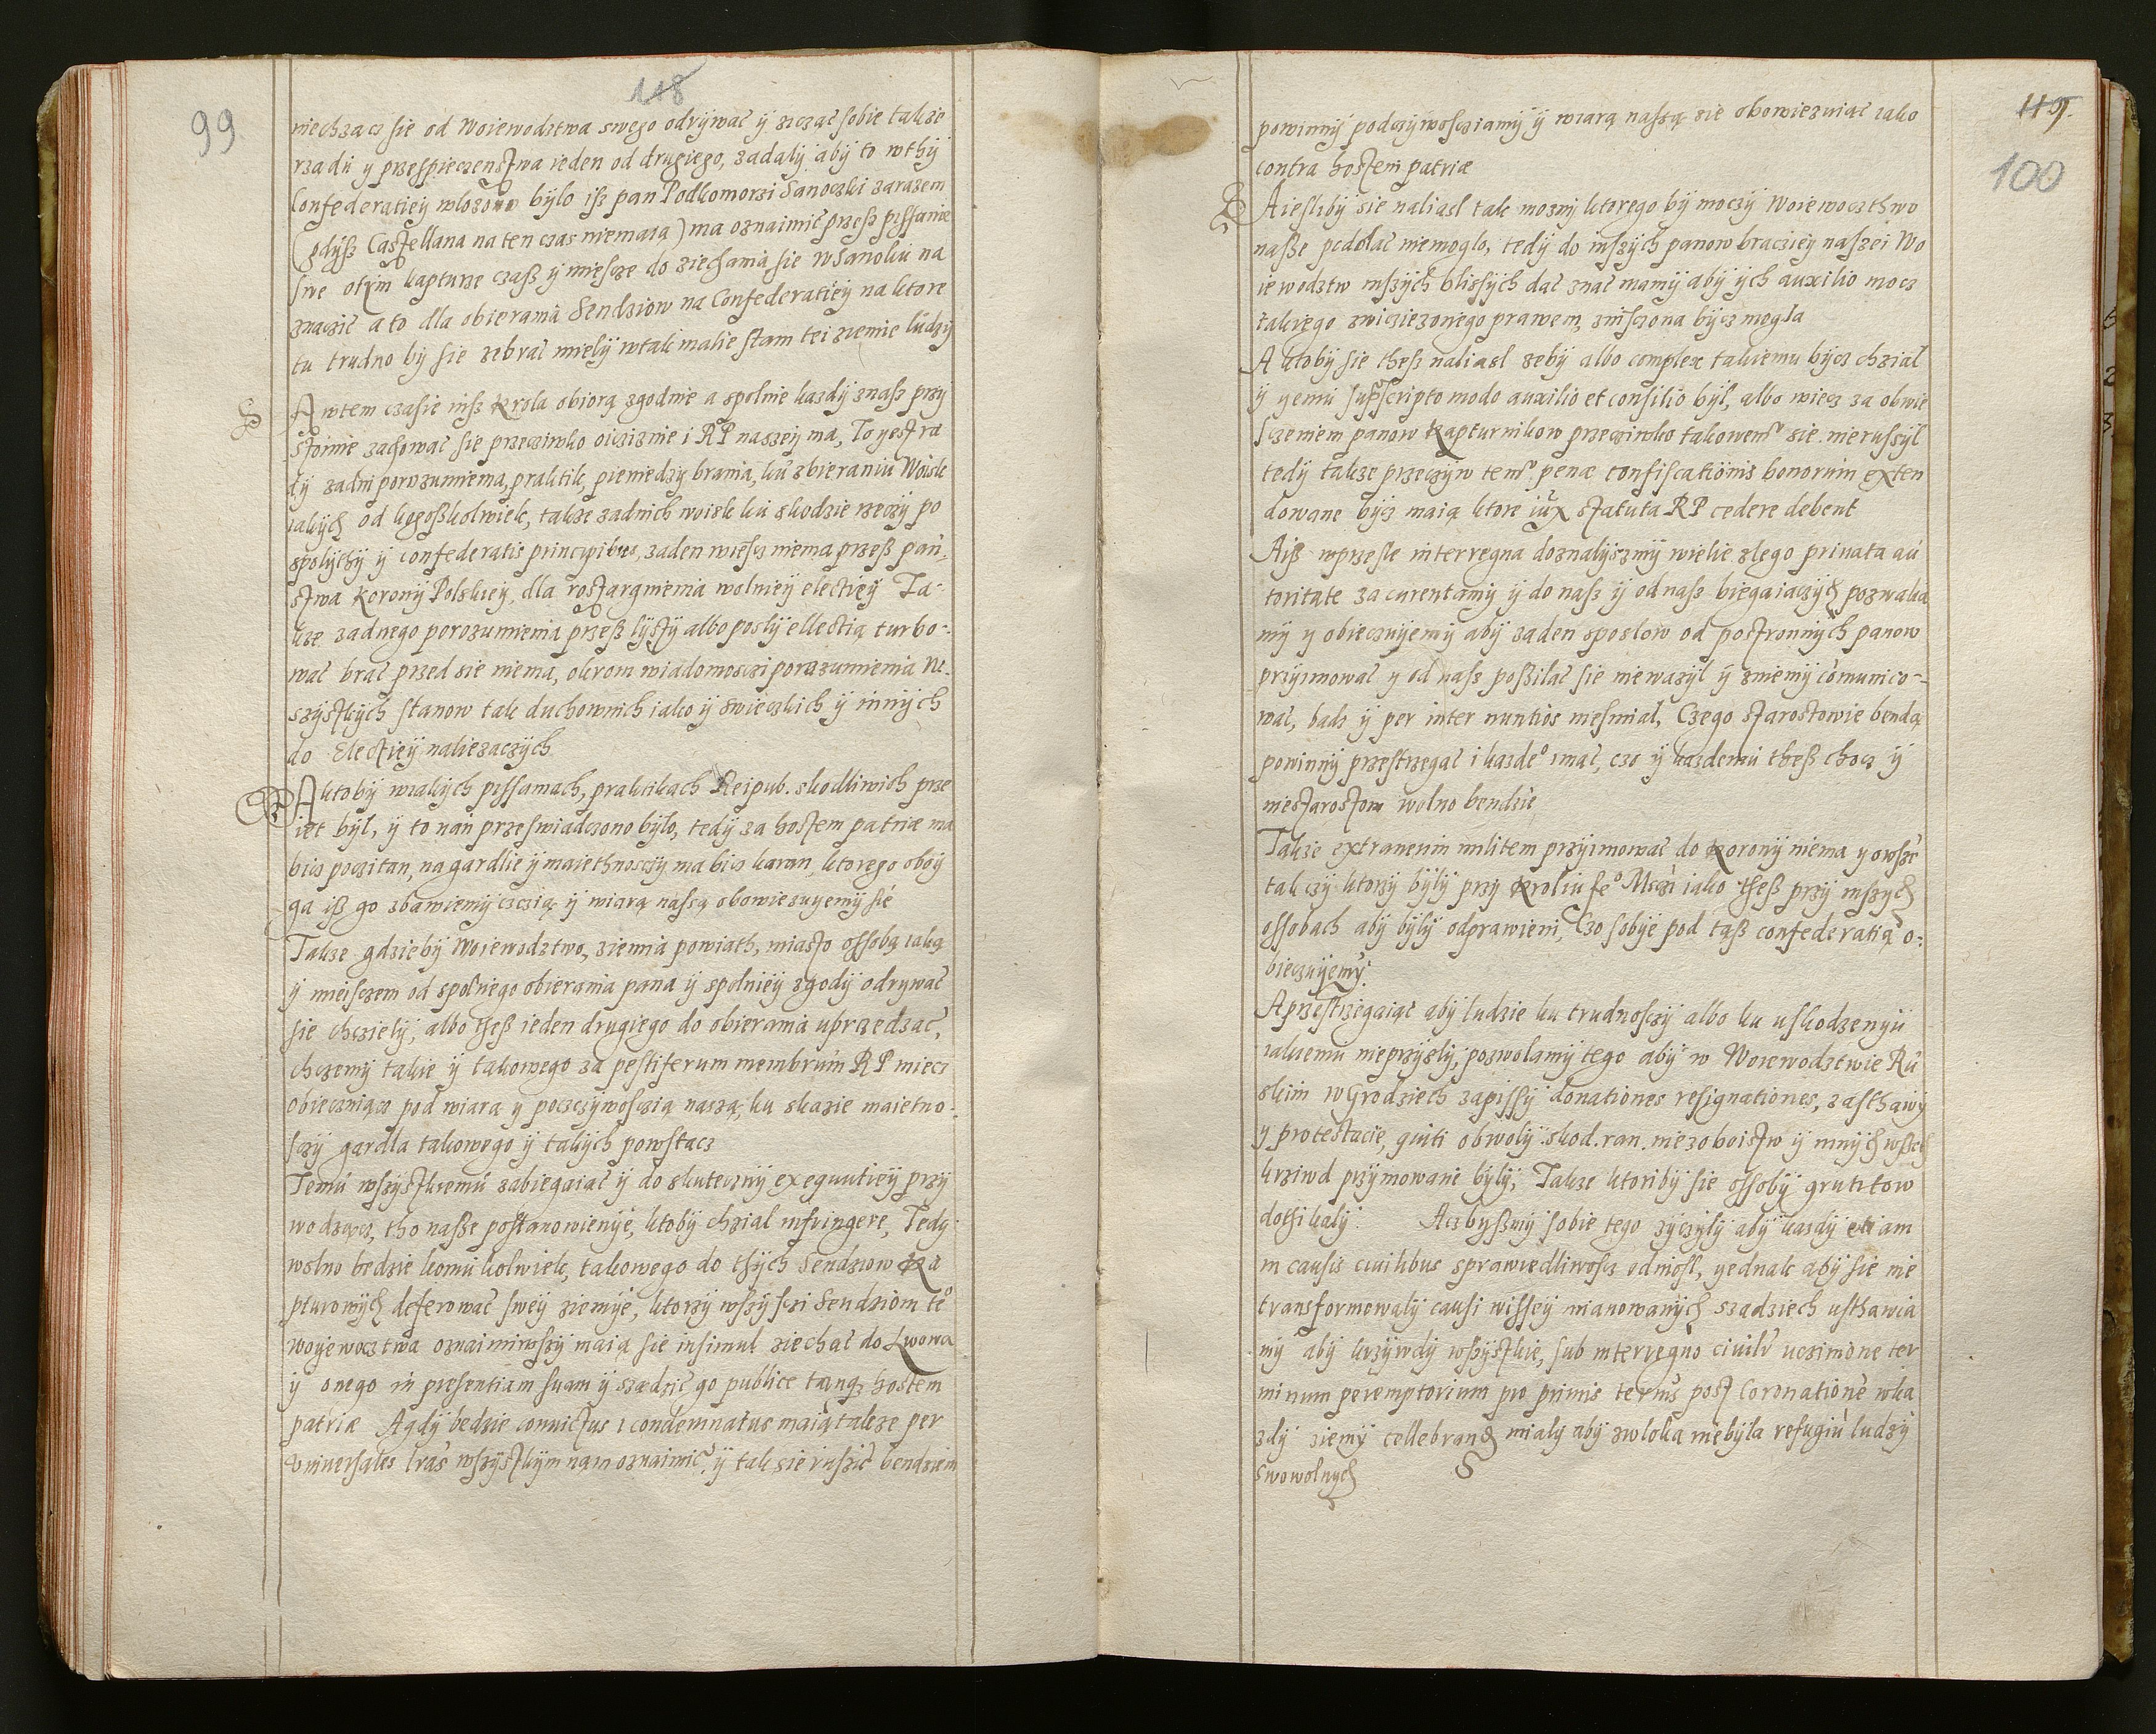 118
99
niechząc sie od Woiewodztwa swego odrywać ÿ ziczać sobie takze
rządu y przespieczenstwa ieden od drugiego, ządaly abÿ to w thÿ
Confederatieÿ włożono bÿło iß pan Podkomorzi Sanoczki zarazem
(gdÿß Castellana na ten czas niemaią) ma oznaimić przeß pissanie
swe o tym kapturze czaß ÿ mieśce do ziechania sie w Sanoku na
znaczić a to dla obierania Sendziow na Confederatieÿ na ktore
tu trudno bÿ sie zebrać mielÿ w tak malie stam tei ziemie ludzÿ
A w tem czasie niß Krola obiorą zgodnie a spolnie kazdÿ z naß przÿ
stoinie zachować sie przeciwko oicziznie i RP naszeÿ ma, To yest ra
dÿ zadni porozumienia, praktik, pieniedzÿ brania, ku zbieraniu Woisk
iakÿch od kogoßkolwiek, takze zadnich woisk ku skodzie rzeczÿ po
spolÿtÿ ÿ confederatis principibus, zaden wieść niema przeß pań-
stwa Koronÿ Polskieÿ, dla rostargnienia wolneÿ electieÿ Ta-
kze zadnego porozumienia przeß lÿstÿ albo poslÿ ellectią turbo-
wać brać przed sie niema, okrom wiadomosczi porozumienia W-
szÿstkÿch stanow tak duchownich iako ÿ swieczkich ÿ innÿch
do Electieÿ naliezaczÿch
A ktobÿ w iakÿch pissaniach, praktikach Reipub. skodliwich prze
iet bÿl, ÿ to nań przeswiadczono bÿlo, tedÿ za hostem patriæ ma
bicz poczitan, na gardlie ÿ maiethnosczÿ ma bicz karan, ktorego oboÿ
ga iß go zbawiemÿ czczią ÿ wiarą naßą obowiezuyemÿ sie
Takze gdziebÿ Woiewodztwo, ziemia powiath, miasto ossobą iaką
ÿ mieisczem od spolnego obierania pana ÿ spolnieÿ zgodÿ odrywać
sie chczielÿ, albo theß ieden drugiego do obierania uprzedzać,
chczemÿ takie ÿ takowego za pestiferum membrum RP miecz
obieczuiącz pod wiarą y poczczÿwosczią naszą, ku skazie maietno-
sczÿ gardla takowego ÿ takÿch powstacz
Temu wszÿstkiemu zabiegaiać ÿ do skutecznÿ exequutieÿ przÿ
wodzącz, tho naße postanowienÿe, ktobÿ chział infringere, Tedy
wolno bedzie komukolwiek, takowego do thÿch Sendziow Ka
pturowÿch deferować sweÿ ziemÿe, ktorzÿ wszÿsczi Sendziom te°
woyewocztwa oznaimiwszÿ maią sie insimul ziechać do Lwowa
ÿ onego in presentiam suam ÿ szedzić go publice tanq; hostem
patriæ A gdÿ bedzie convictus i condemnatus maią takze per
Vniuersales lras wszÿstkÿm nam oznaimić, ÿ tak sie ruszić bendziem
119.
100
powinnÿ podczÿwosciamÿ ÿ wiarą naßą sie obowiezuiąc iako
contra hostem patriæ
A iesliby sie naliasl tak moznÿ ktorego bÿ moczÿ Woiewocztwo
naße podolać niemoglo, tedÿ do inszÿch panow bracziеÿ naszei Wo
iewodztw inszÿch blißÿch dać znać mamÿ abÿ ÿch auxilio mocz
takiego zwiczieżonego prawem, zniſczona bÿcz mogla
A ktobÿ sie theß naliasl żebÿ albo complex takiemu bÿcz chział
ÿ yemu suprascripto modo auxilio et consilio bÿl, albo wiecz za obwie
sczeniem panow Kapturnikow przeciwko takowem° sie nierußÿl
tedÿ takze przeczÿw tem° penæ confiscationis bonorum exten
dowane bÿcz maią ktore iux statuta RP cedere debent
A iß w przesle interregna doznalÿszmÿ wielie zlego priuata au
toritate za curentamÿ ÿ do naß ÿ od naß biegaiaczÿch pozwala
mÿ y obieczuÿemÿ abÿ zaden sposlow od postronnÿch panow
prziimować y od naß poßilać sie niewazÿl ÿ z niemÿ comunico-
wać, badz ÿ per inter nuntios niesmial, Czego starostowie bendą
powinnÿ przestrzegać i kazde° imać, czo ÿ kazdemu theß chocz ÿ
niestarostom wolno bendzie
Takze extraneum militem przÿimować do Koronÿ niema y owsze
takczÿ ktorzÿ bÿlÿ przÿ Kroliu Je° Msczi iako theß przÿ inszÿch
ossobach abÿ bÿlÿ odprawieni, Czo sobÿe pod taß confederatią o-
bieczuÿemÿ.
A przestrzegaiąc abÿ ludzie ku trudnosczÿ albo ku uskodzenÿu
iakiemu nieprzÿslÿ, pozwolamÿ tego abÿ w Woiewodztwie Ru
skim w Grodziech zapissÿ donationes resignationes, zasthawÿ
y protestacie, quiti obwolÿ. skod. ran. niezoboistw ÿ innÿch wßech
krziwd przÿmowane bÿlÿ, Takze ktoribÿ sie ossobÿ gruntow
dothikalÿ. Aczbÿsmÿ sobie tego zÿczÿlÿ abÿ kazdÿ etiam
in causis ciuilibus sprawiedliwoscz odniosl, yednak abÿ sie nie
transformowalÿ causi wisseÿ mianowanÿch szadziech usthawia
mÿ abÿ krzÿwdÿ wszÿstkie, sub interregno ciuilr uczinione ter
minum peremptorium pro primis termis post Coronationē w ka
zdÿ ziemÿ cellebrandi mialÿ abÿ zwloka niebÿla refugiū ludzÿ
swowolnych